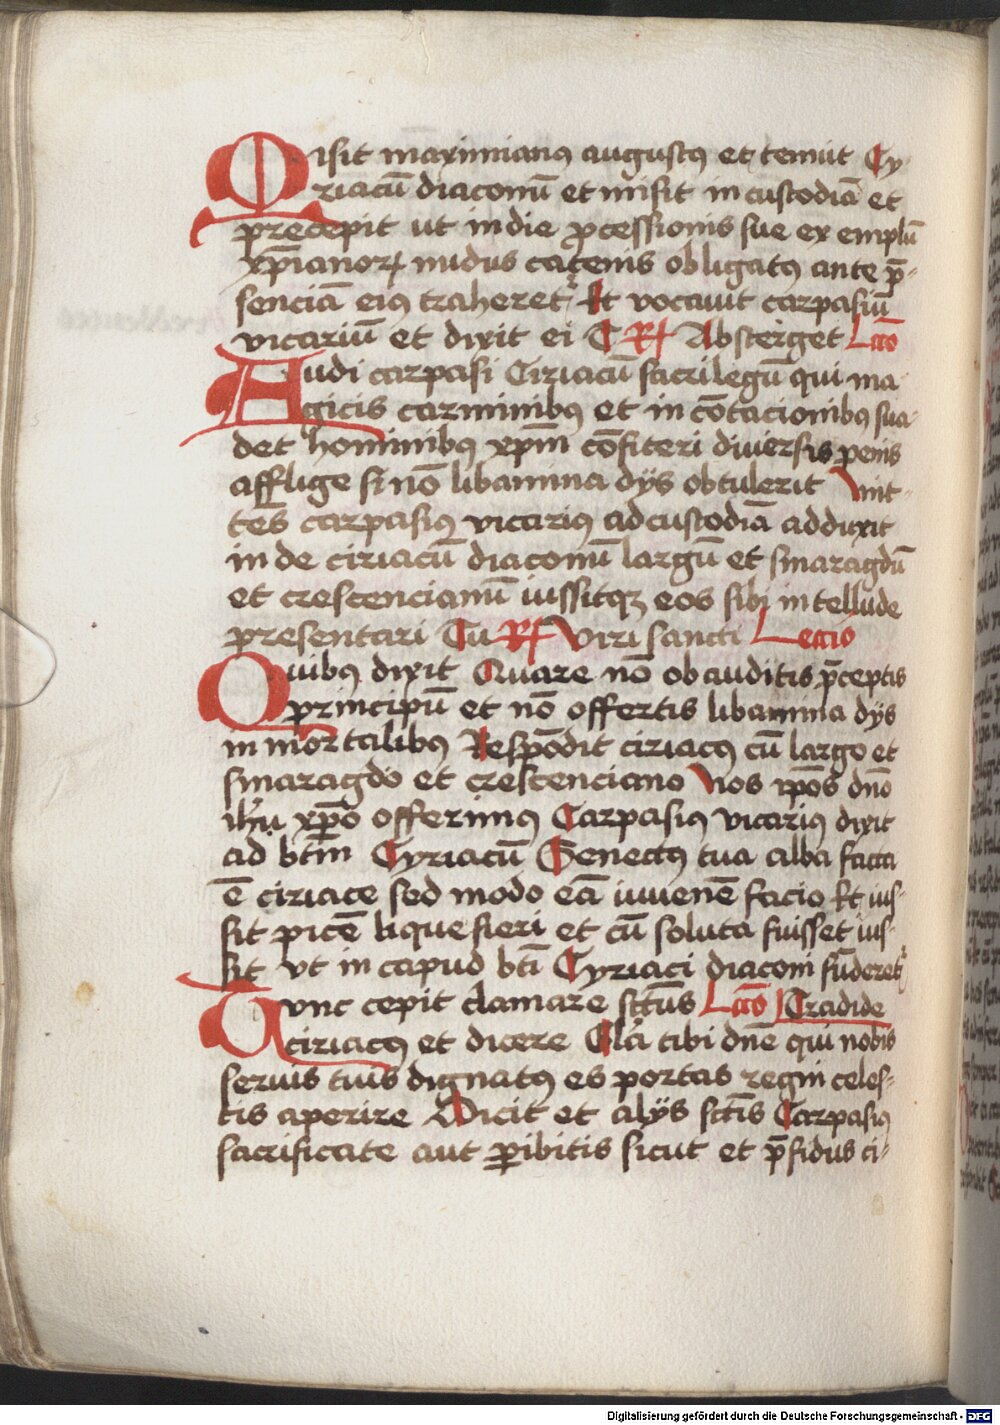 Misit maximianꝰ augustꝰ et tenuit Cy
riacū diaconū et misit in custodiā et
precepit ut in die ꝓcessionis sue ex emplū
xp̄ianoꝝ nudus catenis obligatꝰ ante p̄-
senciā eiꝰ traheret᷑ Et vocauit carpasiū
vicariū et dixit ei C Rꝭ Absterget Lcō
Audi carpasi Ciriacū sacrilegū qui ma
gicis carminibꝰ et in cōtacionibꝰ sua
det hominibꝰ xp̄m cōfiteri diuersis penis
afflige si nō libamina dijs obtulerit Mit-
tēs carpasiꝰ vicariꝰ ad custodiā adduxit
in de ciriacū diaconū largū et smaragdū
et crescencianū iussitqꝫ eos sibi in tellude
presentari Tu Rꝭ Viri sancti Lectio
Quibꝰ dixit Quare nō obauditis p̄ceptis
principū et nō offertis libamina dijs
in mortalibꝰ Respōdit ciriacꝰ cū largo et
smaragdo et crescenciano Nos ip̄os dn̄o
ih̄u xp̄o offerimꝰ Carpasiꝰ vicariꝰ dixit
ad btm̄ Cyriacū Senectꝰ tua alba facta
ē ciriace sed modo eā iuuenē facio Et ius-
sit picē liquefieri et cū soluta fuisset ius-
sit vt in capud bt̄i Cyriaci diaconi fūderet᷑
Tvnc cepit clamare sc̄tus Lcō Tradide
ciriacꝰ et dicere Gl̄a tibi dn̄e qui nobis
seruis tuis dignatꝰ es portas regni celes-
tis aperire Dicit et alijs sc̄tis Carpasiꝰ
sacrificate aut ꝑibitis sicut et p̄fidus ci-
Digitalisierung gefördert durch die Deutsche Forschungsgemeinschaft - DFG